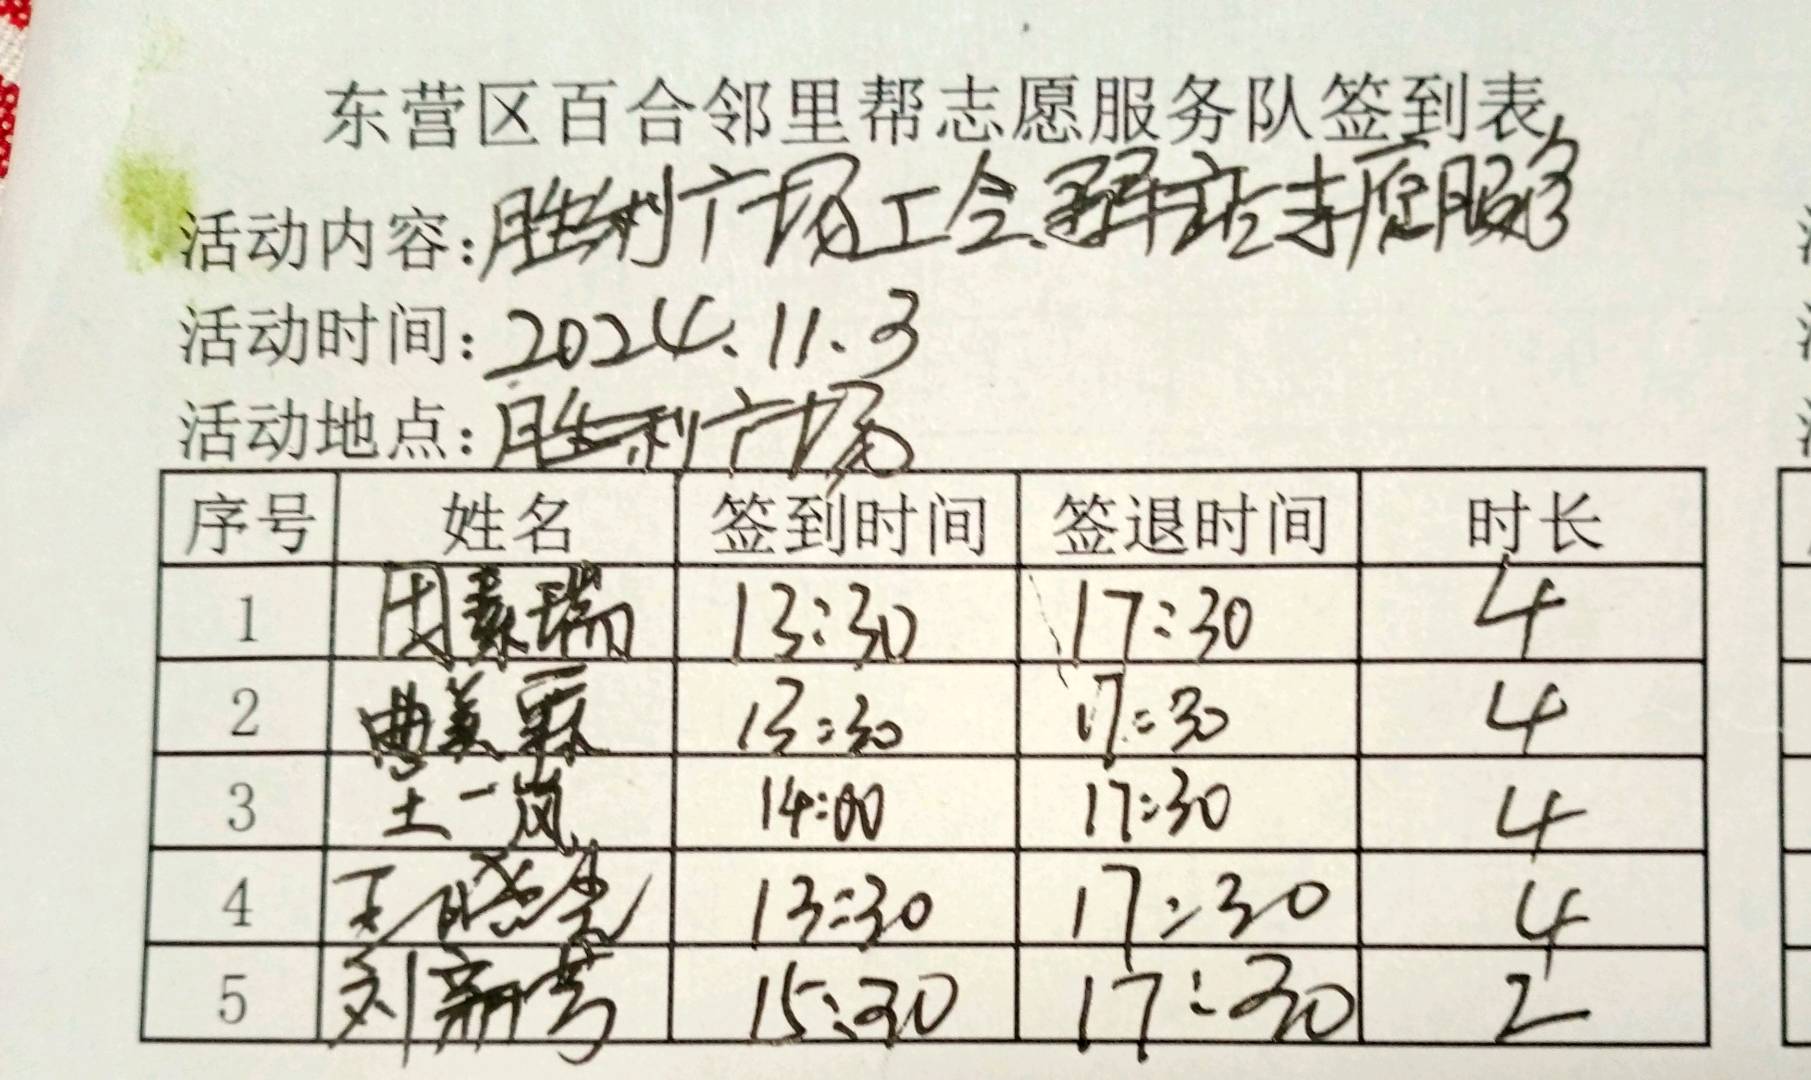 东营区百合邻里帮志愿服务队签到表
活动内容：胜利广场工会驿站志愿服务
活动时间：2024.11.3
活动地点：胜利广场
序号 姓名 签到时间 签退时间 时长
1 田素瑞 13:30 17:30 4
2 曲美霖 13:30 17:30 4
3 王一岚 14:00 17:30 4
4 王晓 13:30 17:30 4
5 刘新芳 15:30 17:30 2